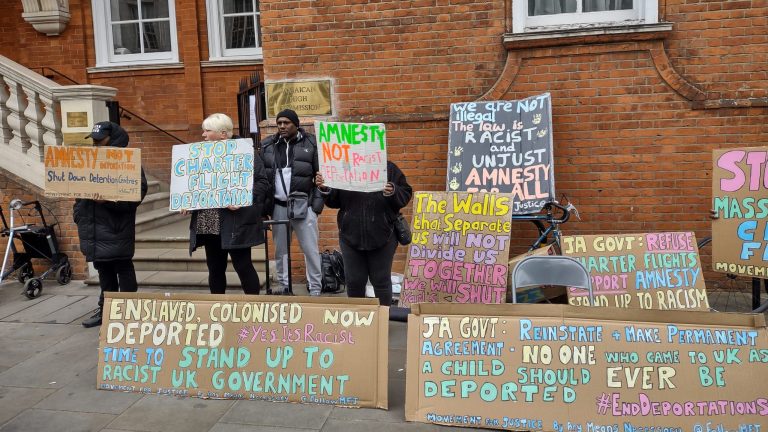 JAMAICAN
HIGH
COMMISSION
AMNESTY NOT DEPORTATION
Shut Down Detention Centres
STOP
CHARTER
FLIGHT
DEPORTATION
AMNESTY
NOT RACIST
DEPORTATION
we are NOT
illegal
The law is
RACIST
and
UNJUST
AMNESTY
FOR ALL
Justice
The Walls
that Separate
us Will NOT
Divide us
TOGETHER
We will SHUT
JA GOVT: REFUSE
CHARTER FLIGHTS
SUPPORT AMNESTY
STAND UP TO RACISM
STO
MASS
C
F
MOVEMENT
ENSLAVED, COLONISED NOW
DEPORTED #YesItsRacist
TIME TO STAND UP TO
RACIST UK GOVERNMENT
MOVEMENT FOR JUSTICE By Any Means Necessary @FollowMFJ
JA GOVT: REINSTATE + MAKE PERMANENT
AGREEMENT - NO ONE WHO CAME TO UK AS
A CHILD SHOULD EVER BE
DEPORTED #EndDeportations
MOVEMENT FOR JUSTICE By Any Means Necessary @FollowMFJ